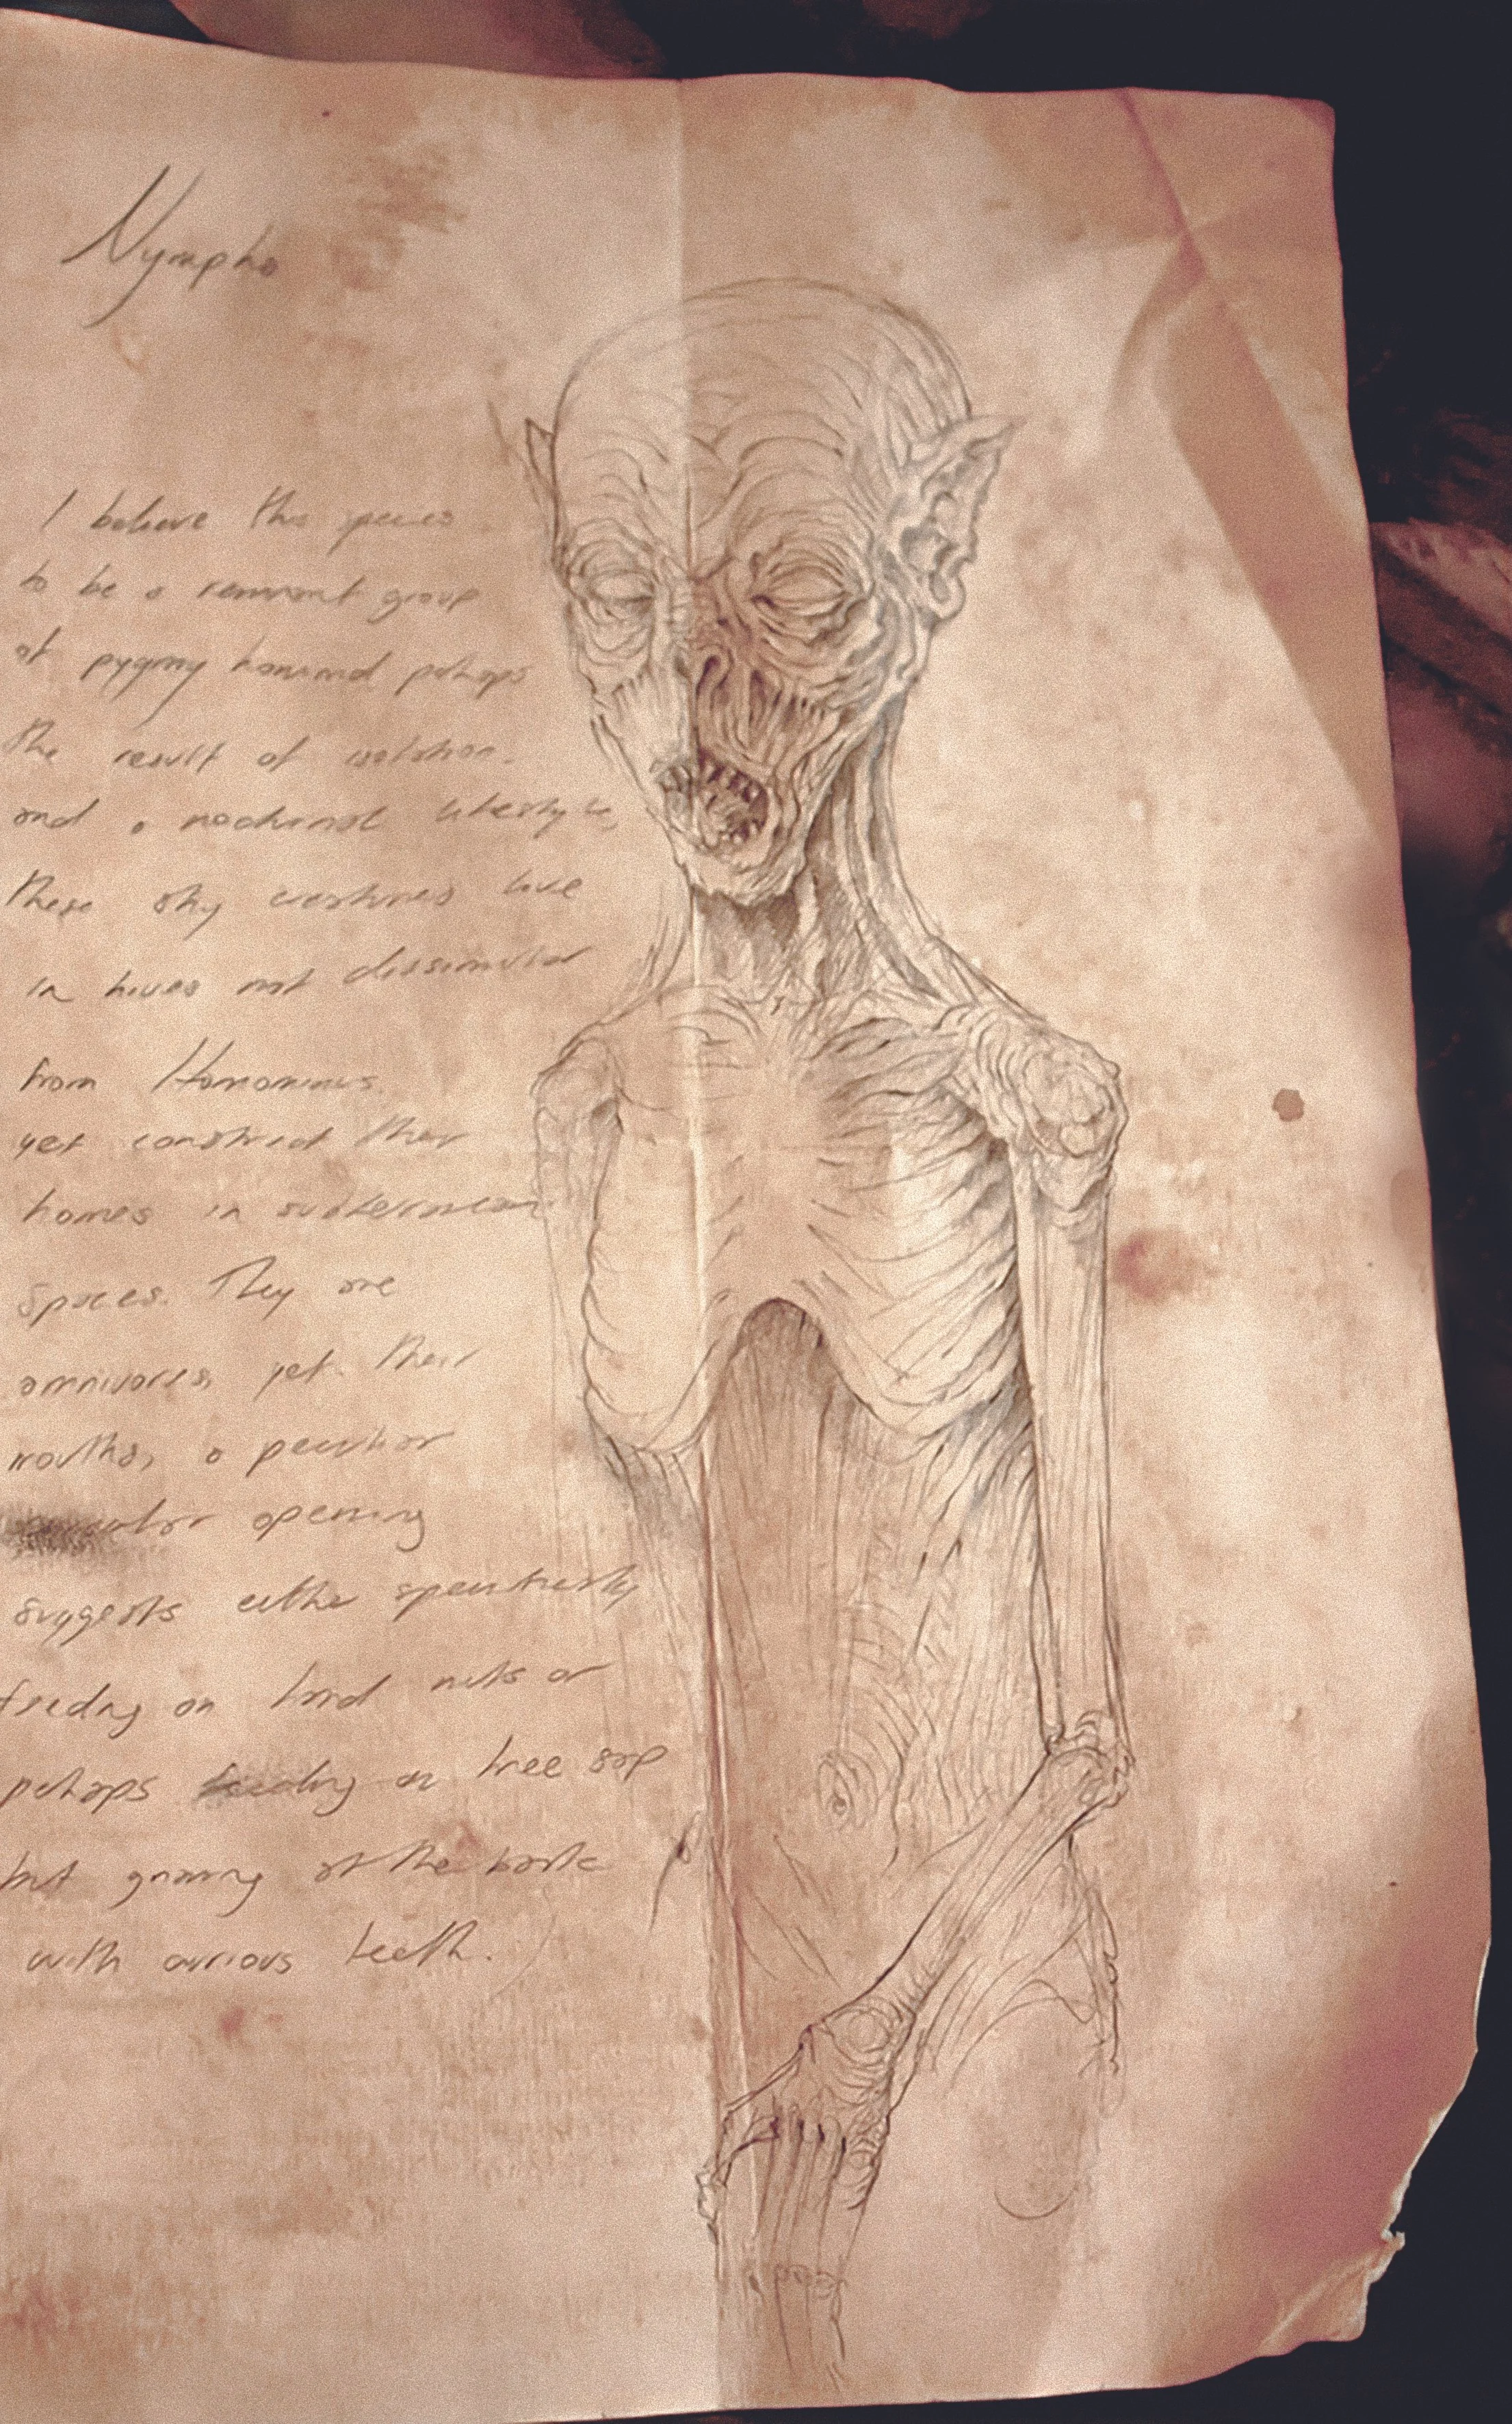 Nympho
I believe this species
to be a remnant group
of pygmy hominid perhaps
the result of isolation.
and a nocturnal lifestyle,
these shy creatures live
in hives not dissimilar
from
yet construct their
homes in subterranean
spaces. They are
omnivores, yet their
mouths, a peculiar
opening
suggests either
feeding on hard nuts or
perhaps feeding on tree sap
but gnawing at the bark
with teeth.